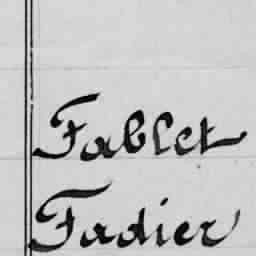 Fablet
Fadier